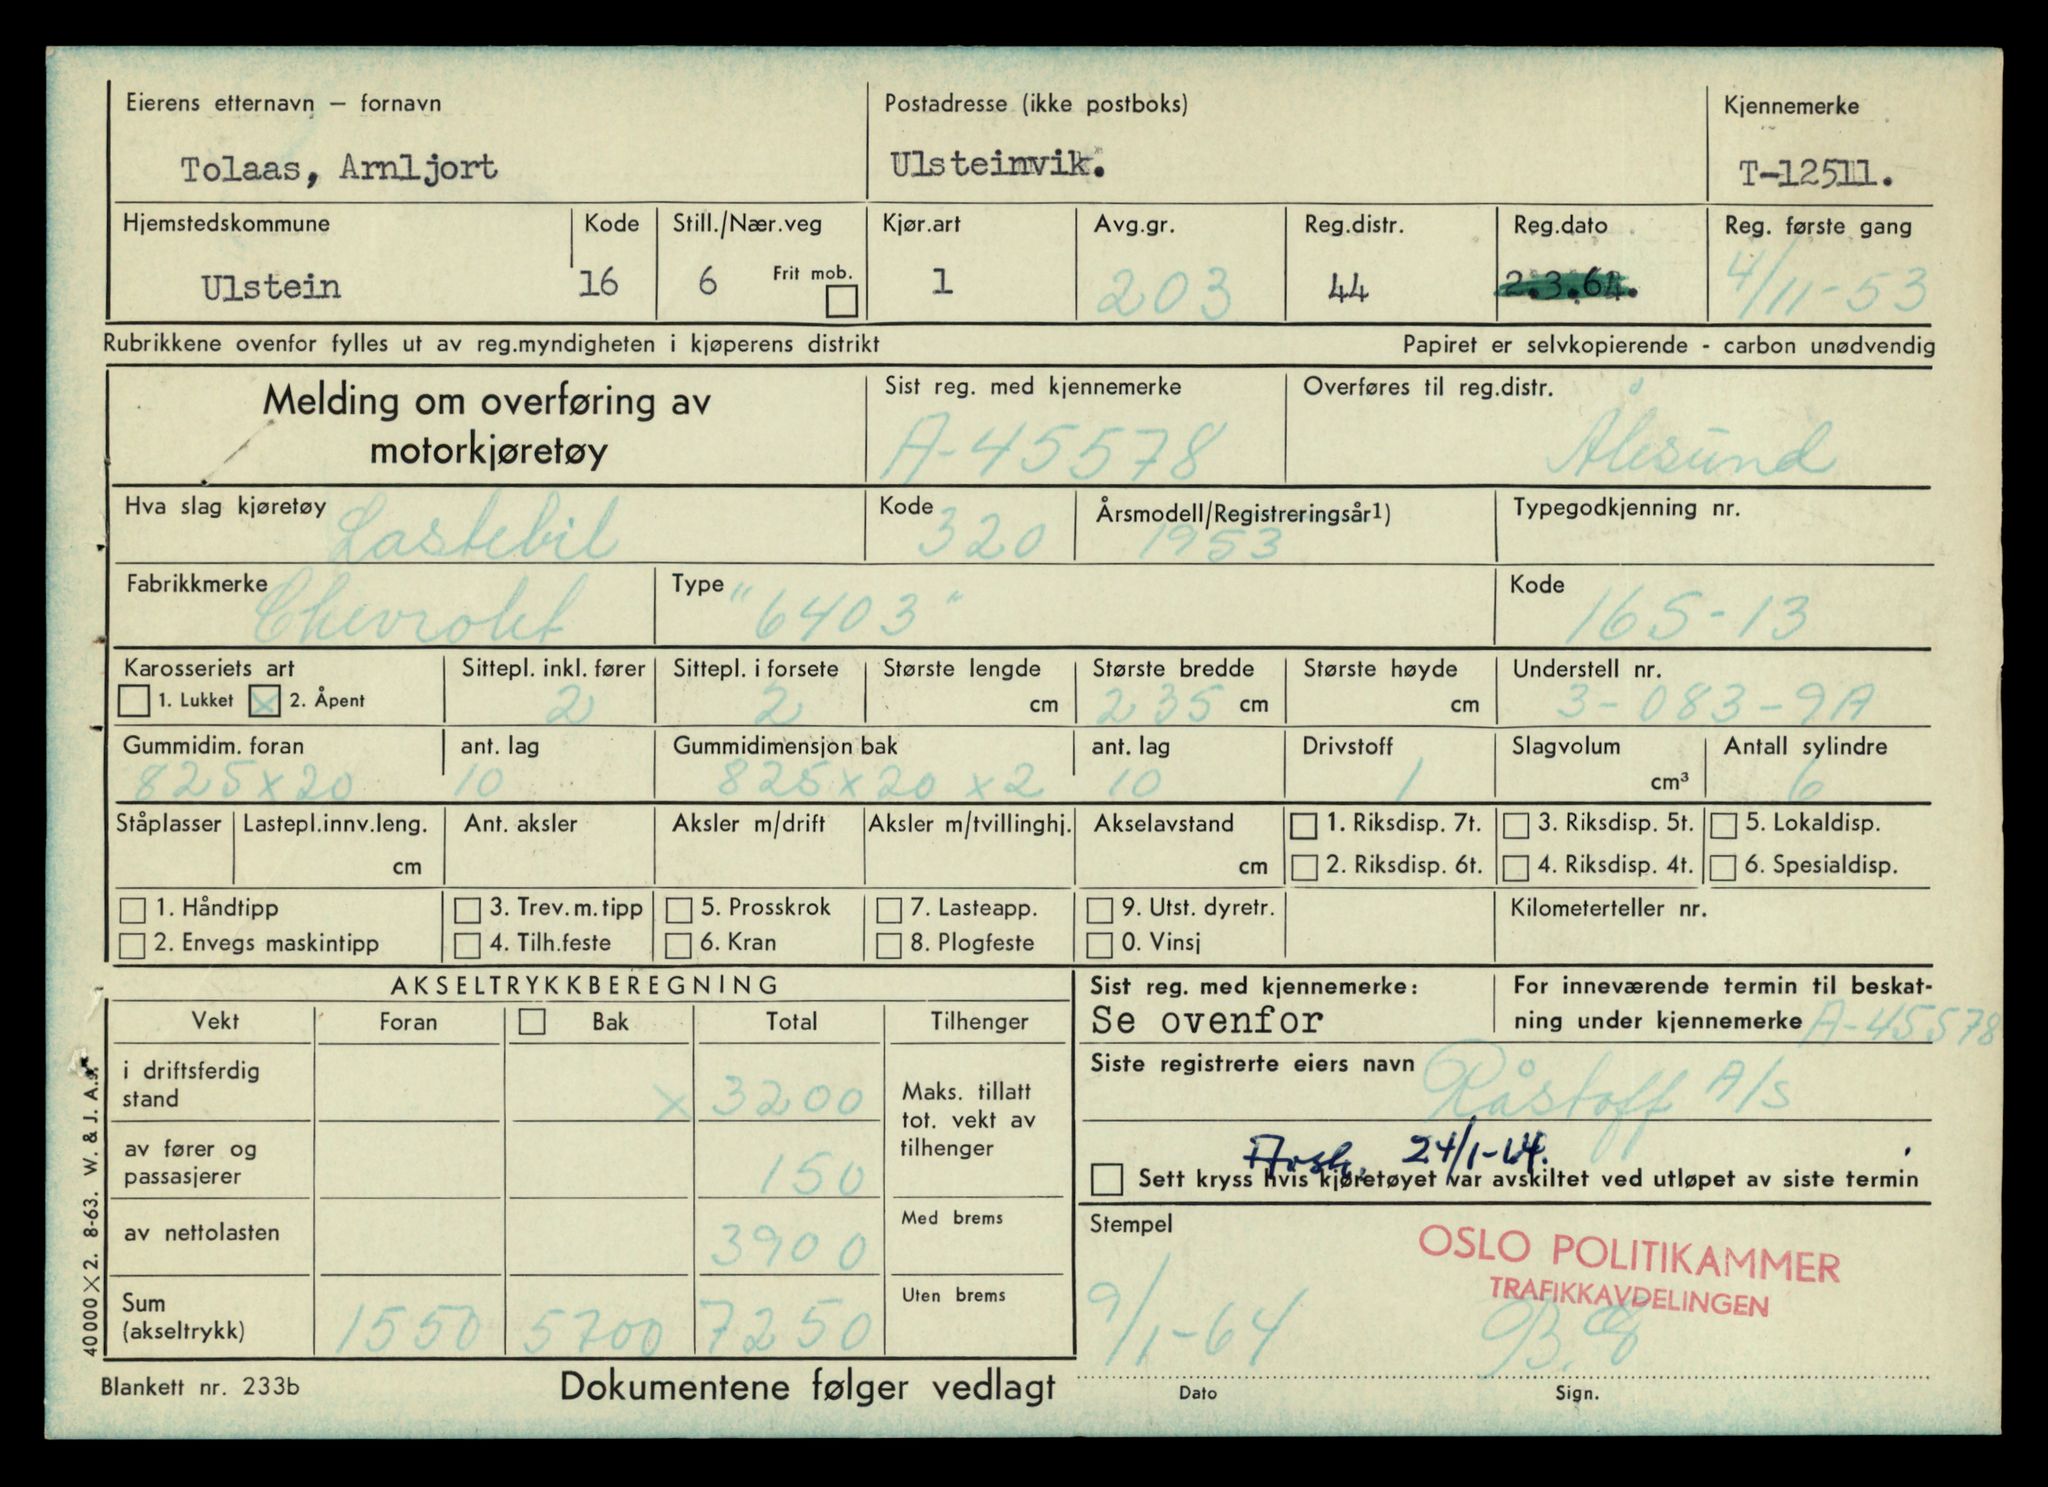 Eierens etternavn — fornavn Postadresse (ikke postboks) Kjennemerke
Tolaas, Arnljort Ulsteinvik. T-12511.
Hjemstedskommune Kode Still./Nær.veg Kjør.art Avg.gr. Reg.distr. Reg.dato Reg. første gang
Ulstein 16 6 Frit mob. 1 203 44 2.3.64. 4/11-53
Rubrikkene ovenfor fylles ut av reg.myndigheten i kjøperens distrikt Papiret er selvkopierende - carbon unødvendig
Melding om overføring av
motorkjøretøy
Sist reg. med kjennemerke Overføres til reg.distr.
A-45578 Ålesund
Hva slag kjøretøy Kode Årsmodell/Registreringsår1) Typegodkjenning nr.
Lastebil 320 1953
Fabrikkmerke Type Kode
Chevrolet "6403" 165-13
Karosseriets art Sittepl. inkl. fører Sittepl. i forsete Største lengde Største bredde Største høyde Understell nr.
1. Lukket X 2. Åpent 2 2 cm 235 cm cm 3-083-9A
Gummidim. foran ant. lag Gummidimensjon bak ant. lag Drivstoff Slagvolum Antall sylindre
825x20 10 825x20x2 10 1 cm³ 6
Ståplasser Lastepl.innv.leng. Ant. aksler Aksler m/drift Aksler m/tvillinghj. Akselavstand 1. Riksdisp. 7t. 3. Riksdisp. 5t. 5. Lokaldisp.
cm cm 2. Riksdisp. 6t. 4. Riksdisp. 4t. 6. Spesialdisp.
1. Håndtipp 3. Trev.m.tipp 5. Prosskrok 7. Lasteapp. 9. Utst. dyretr. Kilometerteller nr.
2. Envegs maskintipp 4. Tilh.feste 6. Kran 8. Plogfeste 0. Vinsj
AKSELTRYKKBEREGNING
Vekt Foran Bak Total Tilhenger
i driftsferdig
stand x 3200
Maks. tillatt
tot. vekt av
tilhenger
av fører og
passasjerer 150
av nettolasten 3900 Med brems
Sum
(akseltrykk) 1550 5700 7250 Uten brems
Sist reg. med kjennemerke: For inneværende termin til beskat-
Se ovenfor ning under kjennemerke A-45578
Siste registrerte eiers navn Råstoff A/S
24/1-64.
Sett kryss hvis kjøretøyet var avskiltet ved utløpet av siste termin
Stempel
OSLO POLITIKAMMER
TRAFIKKAVDELINGEN
9/1-64
Dato Sign.
Blankett nr. 233b Dokumentene følger vedlagt
40 000 X 2. 8-63. W. & J. A.s.